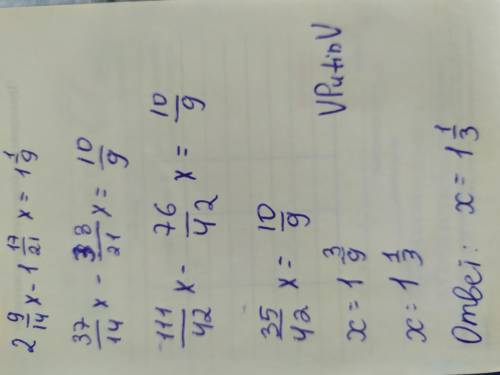 2 9/14 x - 1 17/21 x = 1 1/9
37/14 x - 38/21 x = 10/9
111/42 x - 76/42 x = 10/9
35/42 x = 10/9
x = 1 3/9
VPutinV
x = 1 1/3
Ответ: x = 1 1/3